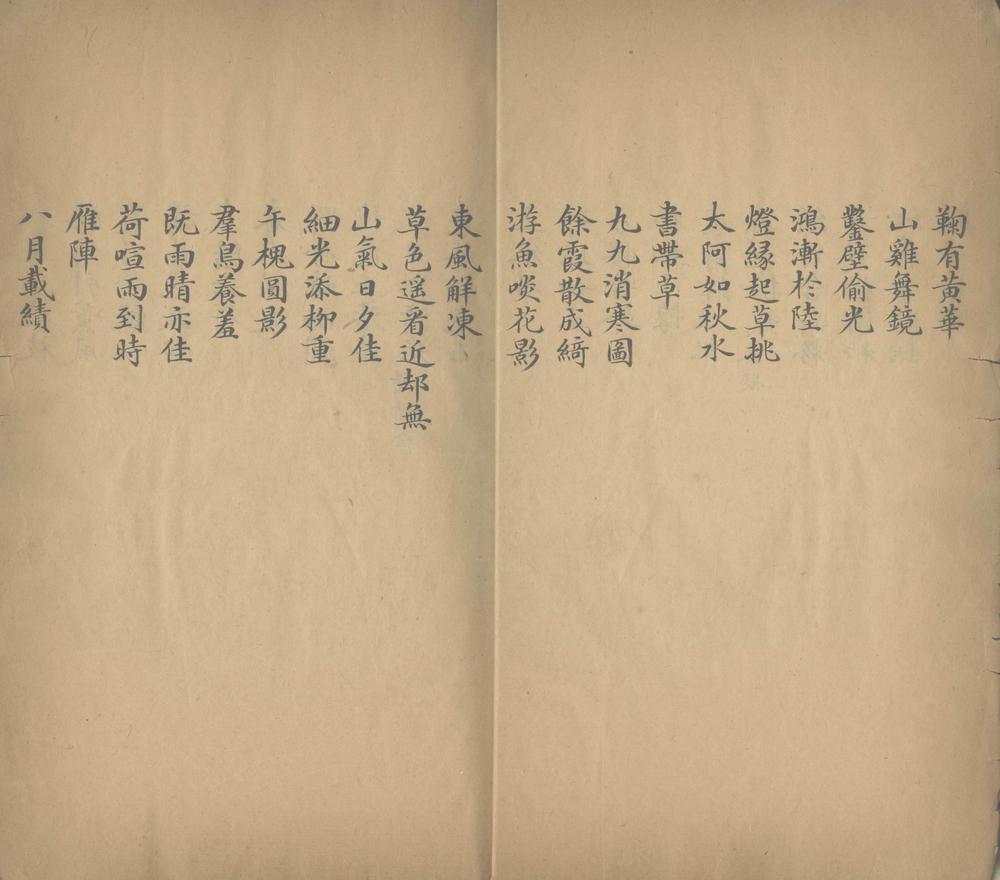 鞠有黃華
山雞舞鏡
鑿壁偷光
鴻漸於陸
燈緣起草挑
太阿如秋水
書帶草
九九消寒圖
餘霞散成綺
游魚啖花影
東風解凍
草色遥看近却無
山氣日夕佳
細光添柳重
午槐圓影
羣鳥養羞
既雨晴亦佳
荷喧雨到時
雁陣
八月載績